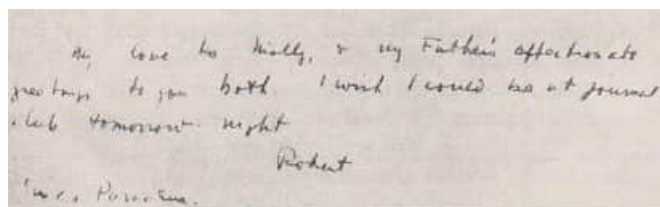 My love to Molly, & my Father's affectionate
greetings to you both. I wish I could be at journal
club tomorrow night
Robert